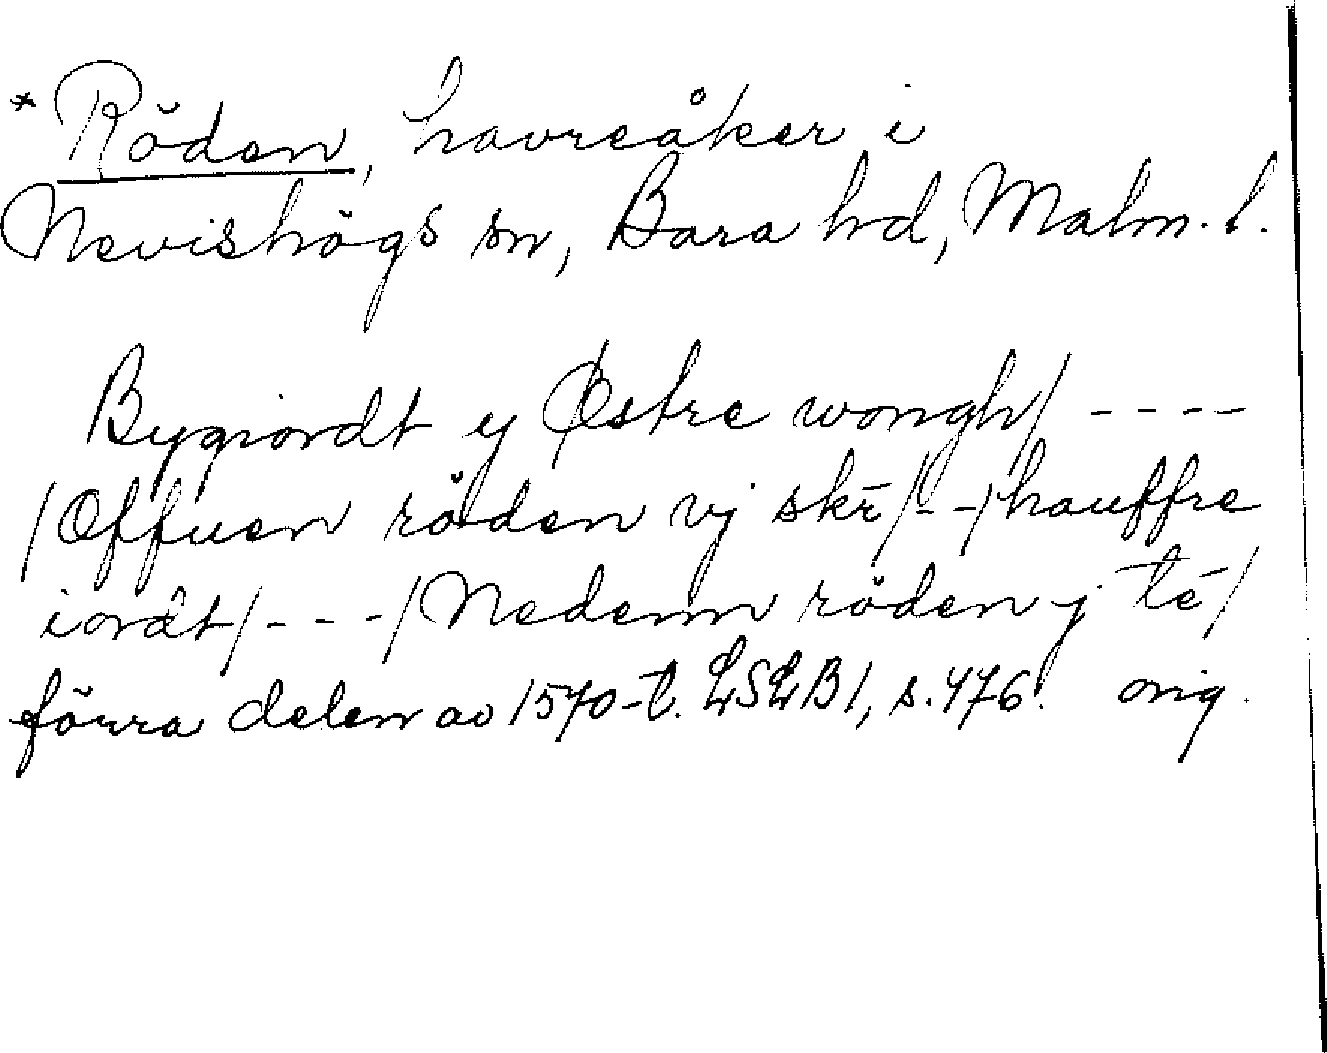 * Röden, havreåker i
Nevishögs sn, Bara hd, Malm. l.
Bygiordt y Østre wongh/ ----
/Offuen röden vj skr̄/--/hauffre
iordt/---/Nedenn röden j té/
förra delen av 1570-t. LSLB1, s. 476. orig.